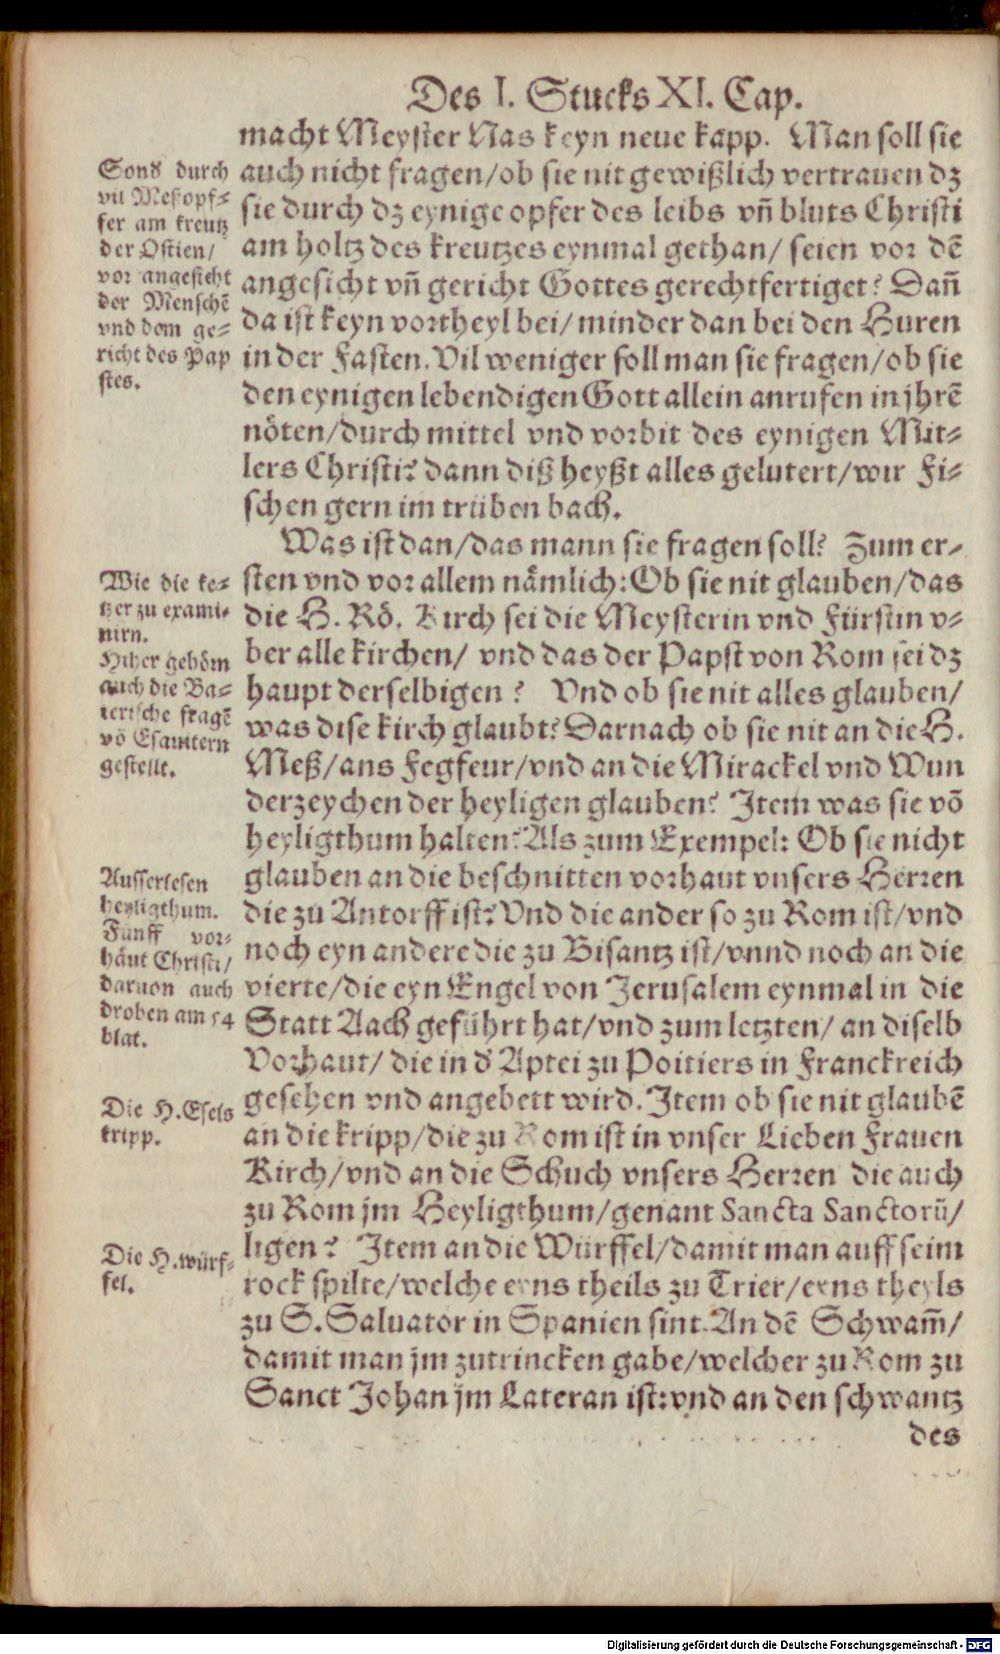 Des I. Stucks XI. Cap.
macht Meyster Nas keyn neue kapp. Man soll sie
auch nicht fragen/ob sie nit gewißlich vertrauen dz
sie durch dz eynige opfer des leibs vñ bluts Christi
am holtz des kreutzes eynmal gethan/ seien vor dē
angesicht vñ gericht Gottes gerechtfertiget? Dañ
da ist keyn vortheyl bei/minder dan bei den Huren
in der Fasten. Vil weniger soll man sie fragen/ob sie
den eynigen lebendigen Gott allein anrufen in jhrē
nöten/durch mittel vnd vorbit des eynigen Mit-
lers Christi? dann diß heyßt alles gelutert/wir Fi-
schen gern im trüben bach.
Sond̕ durch
vil Meßopf-
fer am kreutz
der Ostien/
vor angesicht
der Menschē
vnd dem ge-
richt des Pap
stes.
Was ist dan/das mann sie fragen soll? Zum er-
sten vnd vor allem nämlich: Ob sie nit glauben/das
die H. Rö. Kirch sei die Meysterin vnd Fürstin v-
ber alle kirchen/ vnd das der Papst von Rom sei dz
haupt derselbigen? Vnd ob sie nit alles glauben/
was dise kirch glaubt? Darnach ob sie nit an die H.
Meß/ans Fegfeur/vnd an die Mirackel vnd Wun
derzeychen der heyligen glauben? Item was sie vō
heyligthum halten? Als zum Exempel: Ob sie nicht
glauben an die beschnitten vorhaut vnsers Herren
die zu Antorff ist? Vnd die ander so zu Rom ist/vnd
noch eyn andere die zu Bisantz ist/vnnd noch an die
vierte/die eyn Engel von Jerusalem eynmal in die
Statt Aach geführt hat/vnd zum letzten/ an diselb
Vorhaut/ die in d̕ Aptei zu Poitiers in Franckreich
gesehen vnd angebett wird. Item ob sie nit glaubē
an die kripp/die zu Rom ist in vnser Lieben Frauen
Kirch/vnd an die Schuch vnsers Herren die auch
zu Rom jm Heyligthum/genant Sancta Sanctorū/
ligen? Item an die Würffel/damit man auff seim
rock spilte/welche eyns theils zu Trier/eyns theyls
zu S. Saluator in Spanien sint. An dē Schwam̃/
damit man jm zutrincken gabe/welcher zu Rom zu
Sanct Johan jm Lateran ist: vnd an den schwantz
des
Wie die ke-
tzer zu exami-
nirn.
Hiher gehörn
auch die Ba-
ierische fragē
vō Esauitern
gestellt.
Ausserlesen
heyligthum.
Fünff vor-
häut Christi/
daruon auch
droben am 54
blat.
Die H. Esels
kripp.
Die H. würf-
fel.
Digitalisierung gefördert durch die Deutsche Forschungsgemeinschaft - DFG